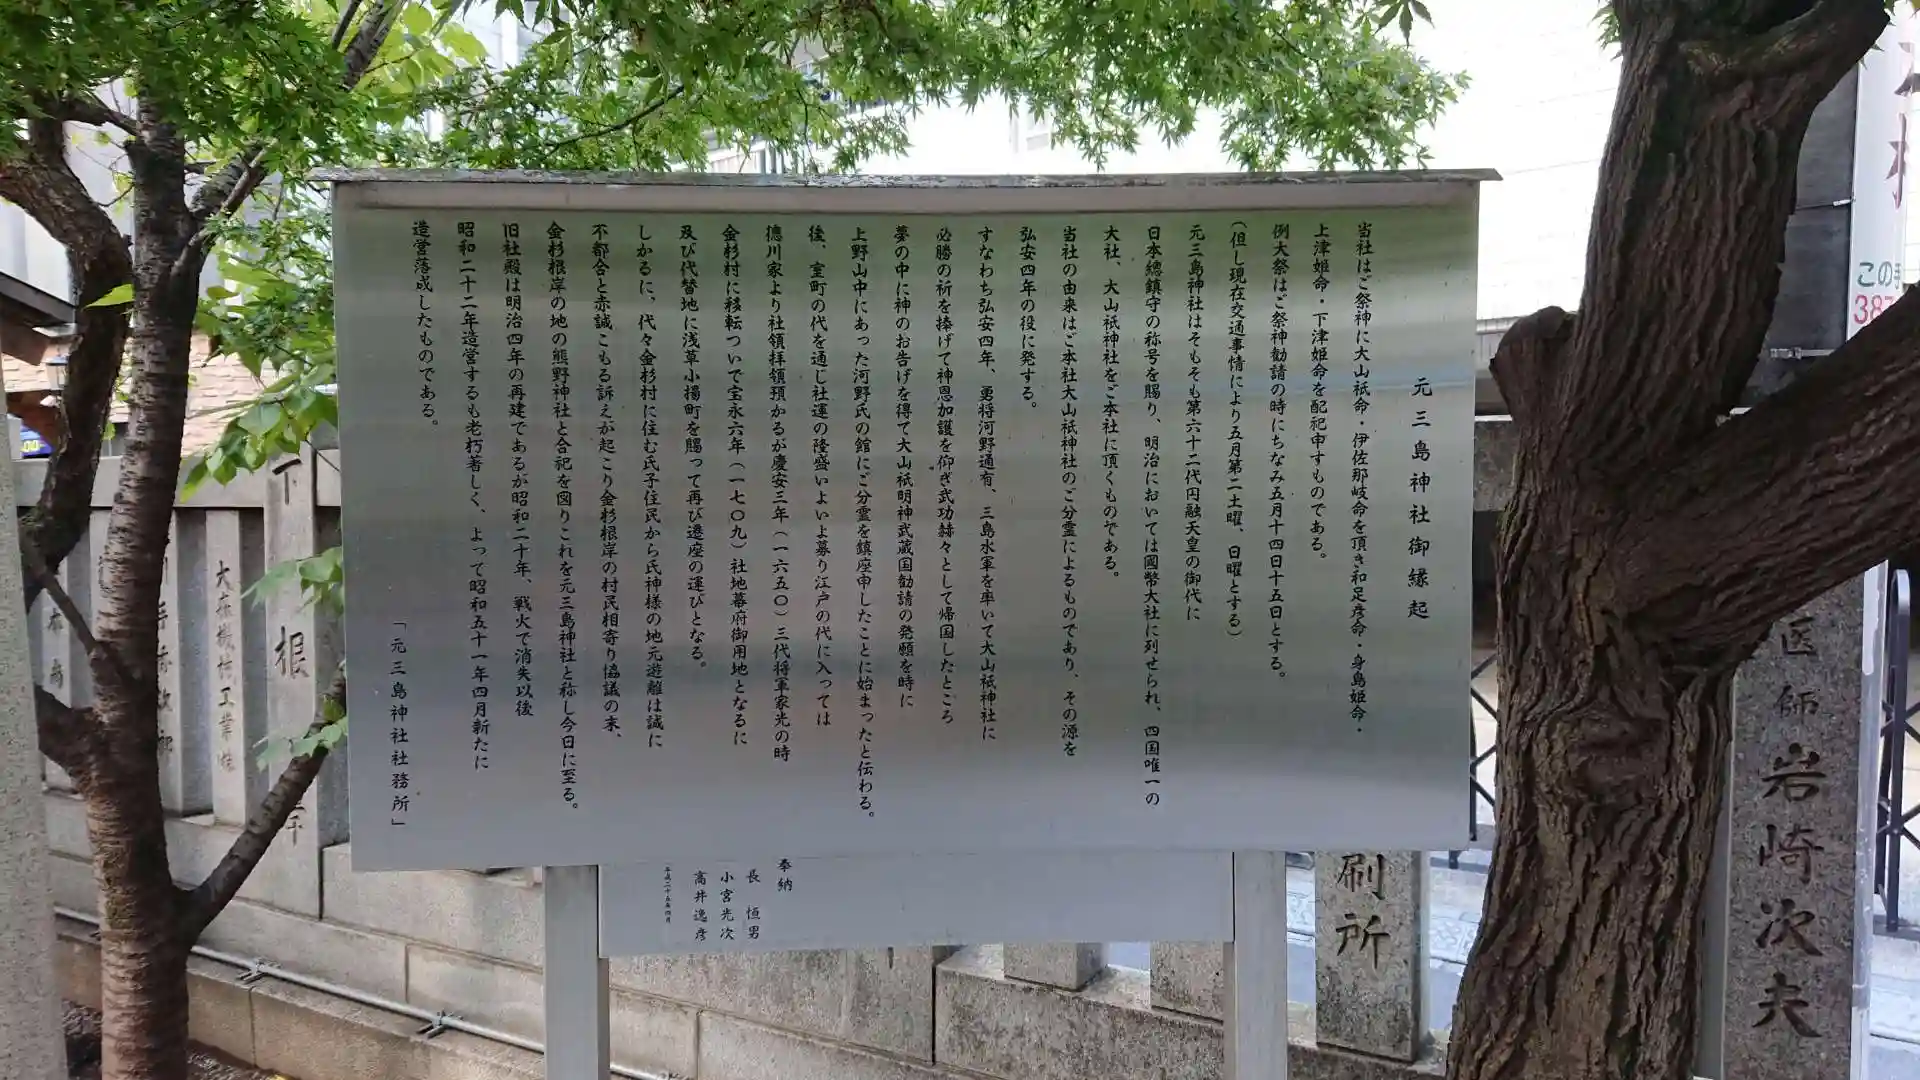 元三島神社御縁起
当社はご祭神に大山祇命・伊佐那岐命を頂き和足彦命・身島姫命・
上津姫命・下津姫命を配祀申すものである。
例大祭はご祭神勧請の時にちなみ五月十四日十五日とする。
(但し現在交通事情により五月第二土曜、日曜とする)
元三島神社はそもそも第六十二代円融天皇の御代に
日本總鎮守の称号を賜り、明治においては國幣大社に列せられ、四国唯一の
大社、大山祇神社をご本社に頂くものである。
当社の由来はご本社大山祇神社のご分霊によるものであり、その源を
弘安四年の役に発する。
すなわち弘安四年、勇将河野通有、三島水軍を率いて大山祇神社に
必勝の祈を捧げて神恩加護を仰ぎ武功赫々として帰国したところ
夢の中に神のお告げを得て大山祇明神武蔵国勧請の発願を時に
上野山中にあった河野氏の館にご分霊を鎮座申したことに始まったと伝わる。
後、室町の代を通じ社運の隆盛いよいよ募り江戸の代に入っては
徳川家より社領拝領預かるが慶安三年(一六五〇)三代将軍家光の時
金杉村に移転ついで宝永六年(一七〇九)社地幕府御用地となるに
及び代替地に浅草小揚町を賜って再び遷座の運びとなる。
しかるに、代々金杉村に住む氏子住民から氏神様の地元遊離は誠に
不都合と赤誠こもる訴えが起こり金杉根岸の村民相寄り協議の末、
金杉根岸の地の熊野神社と合祀を図りこれを元三島神社と称し今日に至る。
旧社殿は明治四年の再建であるが昭和二十年、戦火で消失以後
昭和二十二年造営するも老朽著しく、よって昭和五十一年四月新たに
造営落成したものである。
「元三島神社社務所」
奉納
長 恒男
小宮光次
高井逸彦
平成二十五年四月
医師岩崎次夫
刷所
この手
387
下根